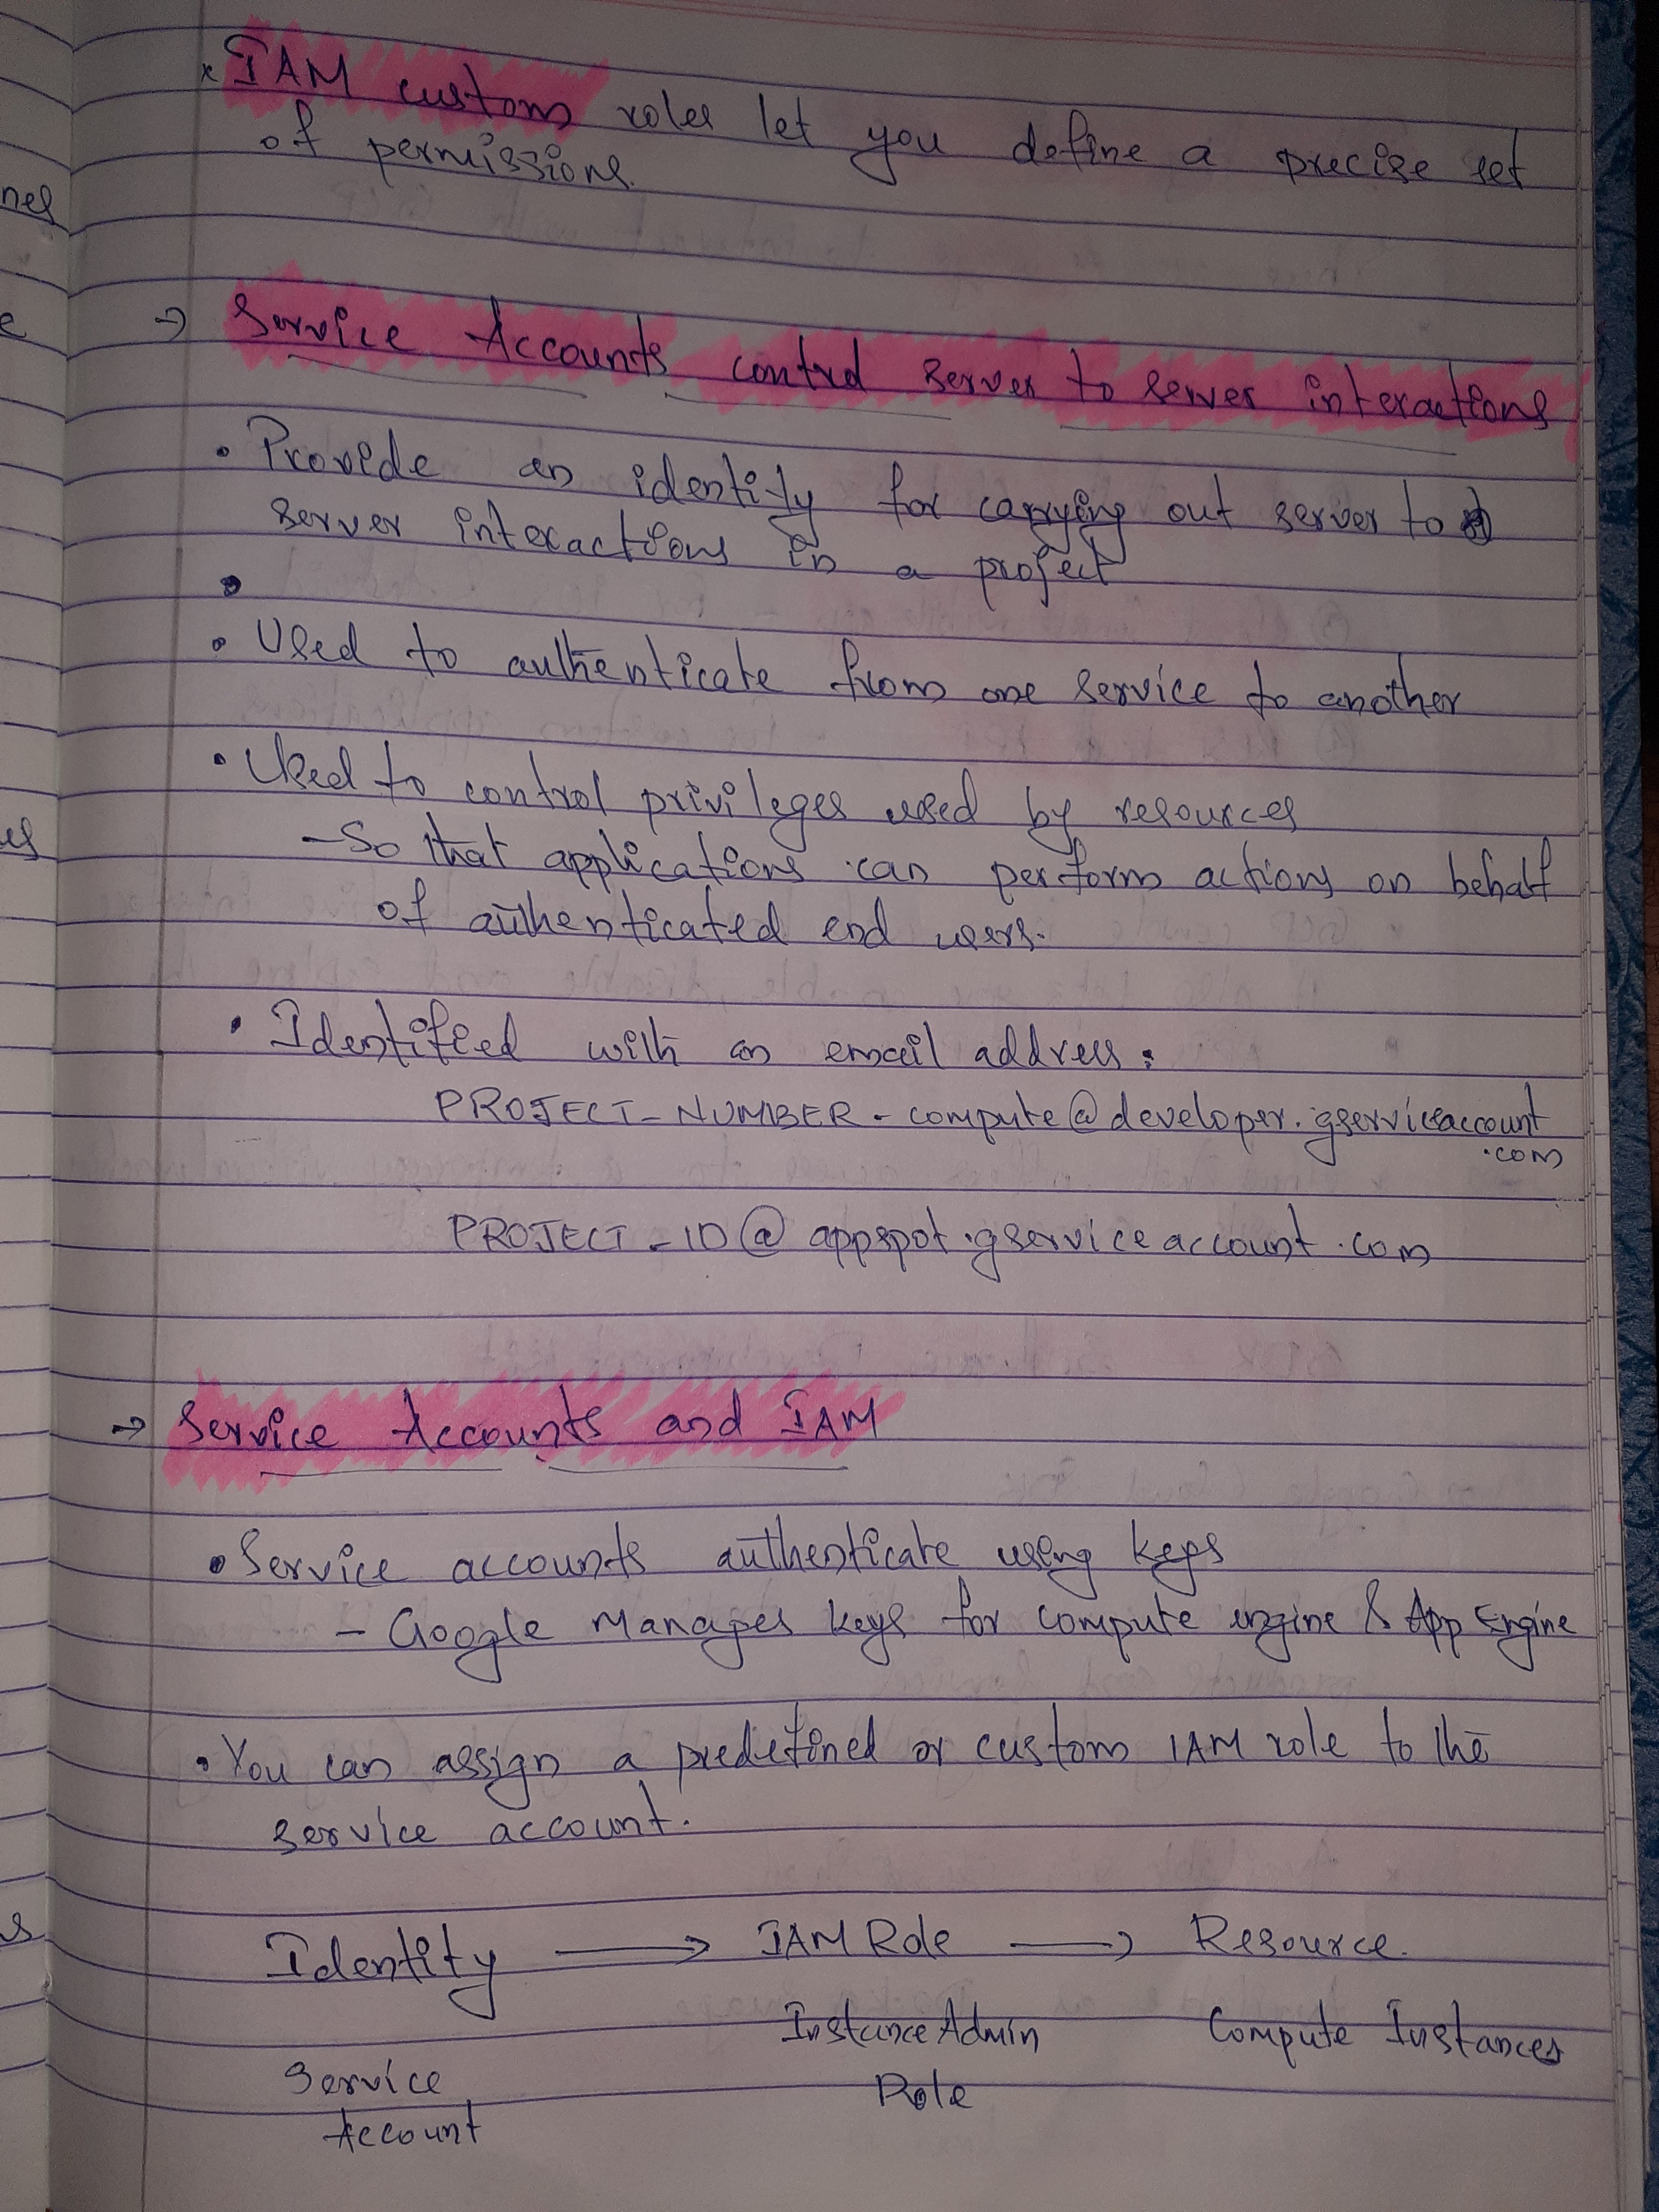 x IAM custom roles let you define a precise set
of permissions.
→ Service Accounts control server to server interactions
• Provide an identity for carrying out server to
server interactions in a project
•
• Used to authenticate from one service to another
• Used to control privileges used by resources
- So that applications can perform actions on behalf
of authenticated end users.
• Identified with an email address:
PROJECT_NUMBER - compute@developer.gserviceaccount
.com
PROJECT_ID@appspot.gserviceaccount.com
→ Service Accounts and IAM
• Service accounts authenticate using keys
- Google Manages keys for compute engine & App Engine
• You can assign a predefined or custom IAM role to the
service account.
Identity → IAM Role → Resource.
InstanceAdmin Compute Instances
Service Role
Account
nes
e
es
s